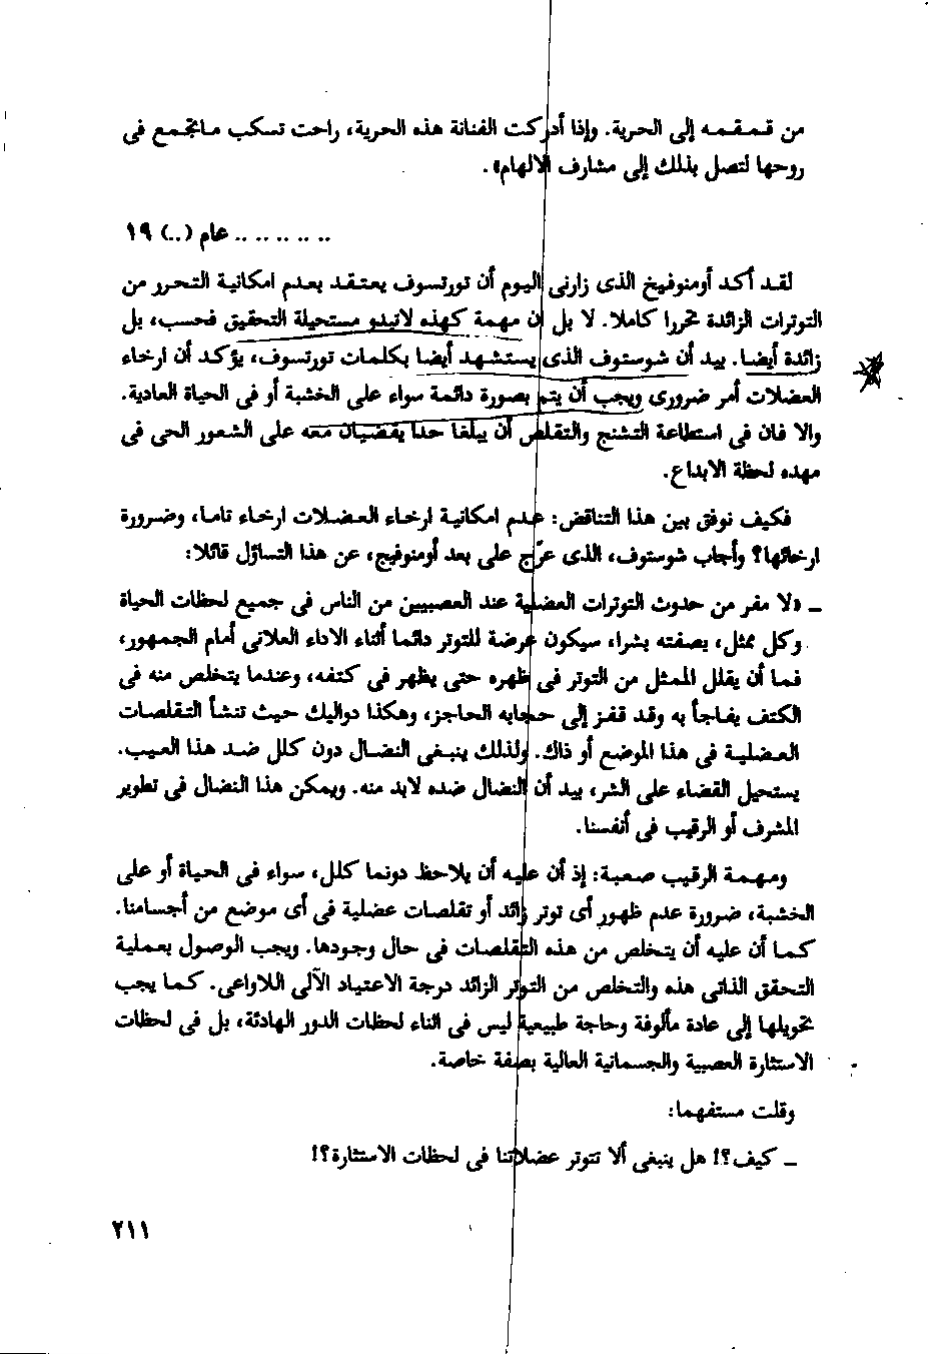 من قمقمه إلى الحرية. وإذا أدركت الفنانة هذه الحرية، راحت تسكب مايتجمع فى
روحها لتصل بذلك إلى مشارف الالهام».
.. .. .. .. .. عام (..) ١٩
لقد أكد أومنوفيخ الذى زارنى اليوم أن تورتسوف يعتقد بعدم امكانية التحرر من
التوترات الزائدة تحررا كاملا. لا بل ان مهمة كهذه لاتبدو مستحيلة التحقيق فحسب، بل
زائدة أيضا. بيد أن شوستوف الذى يستشهد أيضا بكلمات تورتسوف، يؤكد أن ارخاء
العضلات أمر ضرورى ويجب أن يتم بصورة دائمة سواء على الخشبة أو فى الحياة العادية.
والا فان فى استطاعة التشنج والتقلص أن يبلغا حدا يقضيان معه على الشعور الحى فى
مهده لحظة الابداع.
فكيف نوفق بين هذا التناقض: عدم امكانية ارخاء العضلات ارخاء تاما، وضرورة
ارخائها؟ وأجاب شوستوف، الذى عرّج على بعد أومنوفيج، عن هذا التساؤل قائلا:
ـ «لا مفر من حدوث التوترات العضلية عند العصبيين من الناس فى جميع لحظات الحياة
وكل ممثل، بصفته بشرا، سيكون عرضة للتوتر دائما أثناء الاداء العلانى أمام الجمهور،
فما أن يقلل الممثل من التوتر فى ظهره حتى يظهر فى كتفه، وعندما يتخلص منه فى
الكتف يفاجأ به وقد قفز إلى حجابه الحاجز، وهكذا دواليك حيث تنشأ التقلصات
العضلية فى هذا الموضع أو ذاك. ولذلك ينبغى النضال دون كلل ضد هذا العيب.
يستحيل القضاء على الشر، بيد أن النضال ضده لابد منه. ويمكن هذا النضال فى تطوير
المشرف أو الرقيب فى أنفسنا.
ومهمة الرقيب صعبة: إذ أن عليه أن يلاحظ دونما كلل، سواء فى الحياة أو على
الخشبة، ضرورة عدم ظهور أى توتر زائد أو تقلصات عضلية فى أى موضع من أجسامنا.
كما أن عليه أن يتخلص من هذه التقلصات فى حال وجودها. ويجب الوصول بعملية
التحقق الذاتى هذه والتخلص من التوتر الزائد درجة الاعتياد الآلى اللاواعى. كما يجب
تحويلها إلى عادة مألوفة وحاجة طبيعية ليس فى اثناء لحظات الدور الهادئة، بل فى لحظات
الاستثارة العصبية والجسمانية العالية بصفة خاصة.
وقلت مستفهما:
ـ كيف؟! هل ينبغى ألا تتوتر عضلاتنا فى لحظات الاستثارة؟!
٢١١